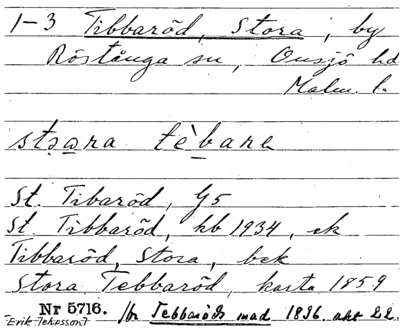 1-3 Tibbaröd, Stora, by
Röstånga sn, Onsjö hd
Malm. l.
stǫara tèbare
St. Tibaröd, G5
St. Tibbaröd, kb 1934, ek
Tibbaröd, Stora, bek
Stora Tebbaröd, karta 1859
Nr 5716. Hr Tebbaröds mad 1836. akt 22.
[Erik Jeppsson]